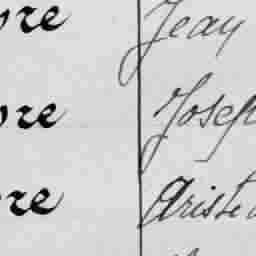 vre Jean
vre Joseph
vre Ariste